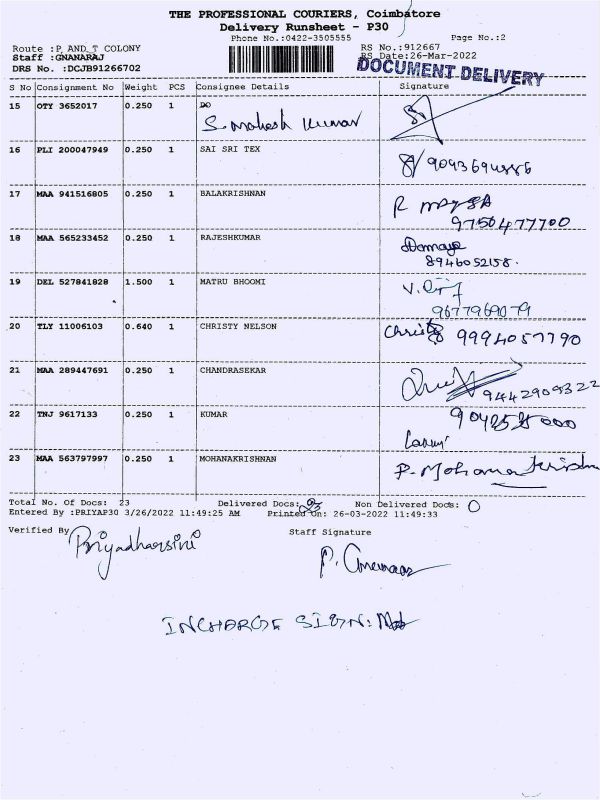 THE PROFESSIONAL COURIERS, Coimbatore
Delivery Runsheet - P30
Phone No.:0422-3505555 Page No.:2
Route :P_AND_T COLONY RS No.:912667
Staff :GNANARAJ RS Date:26-Mar-2022
DRS No. :DCJB91266702 DOCUMENT DELIVERY
S No Consignment No Weight PCS Consignee Details Signature
15 OTY 3652017 0.250 1 DO
S. Mahesh Kumar
16 PLI 200047949 0.250 1 SAI SRI TEX
17 MAA 941516805 0.250 1 BALAKRISHNAN
9750477700
18 MAA 565233452 0.250 1 RAJESHKUMAR
8946052158.
19 DEL 527841828 1.500 1 MATRU BHOOMI
9677969079
20 TLY 11006103 0.640 1 CHRISTY NELSON Christy 9994057790
21 MAA 289447691 0.250 1 CHANDRASEKAR
9442909322
22 TNJ 9617133 0.250 1 KUMAR
Laxmi
23 MAA 563797997 0.250 1 MOHANAKRISHNAN P. Mohana Krishn
Total No. Of Docs: 23 Delivered Docs: 23 Non Delivered Docs: 0
Entered By :PRIYAP30 3/26/2022 11:49:25 AM Printed On: 26-03-2022 11:49:33
Verified By Priyadharsini Staff Signature
INCHARGE SIGN: